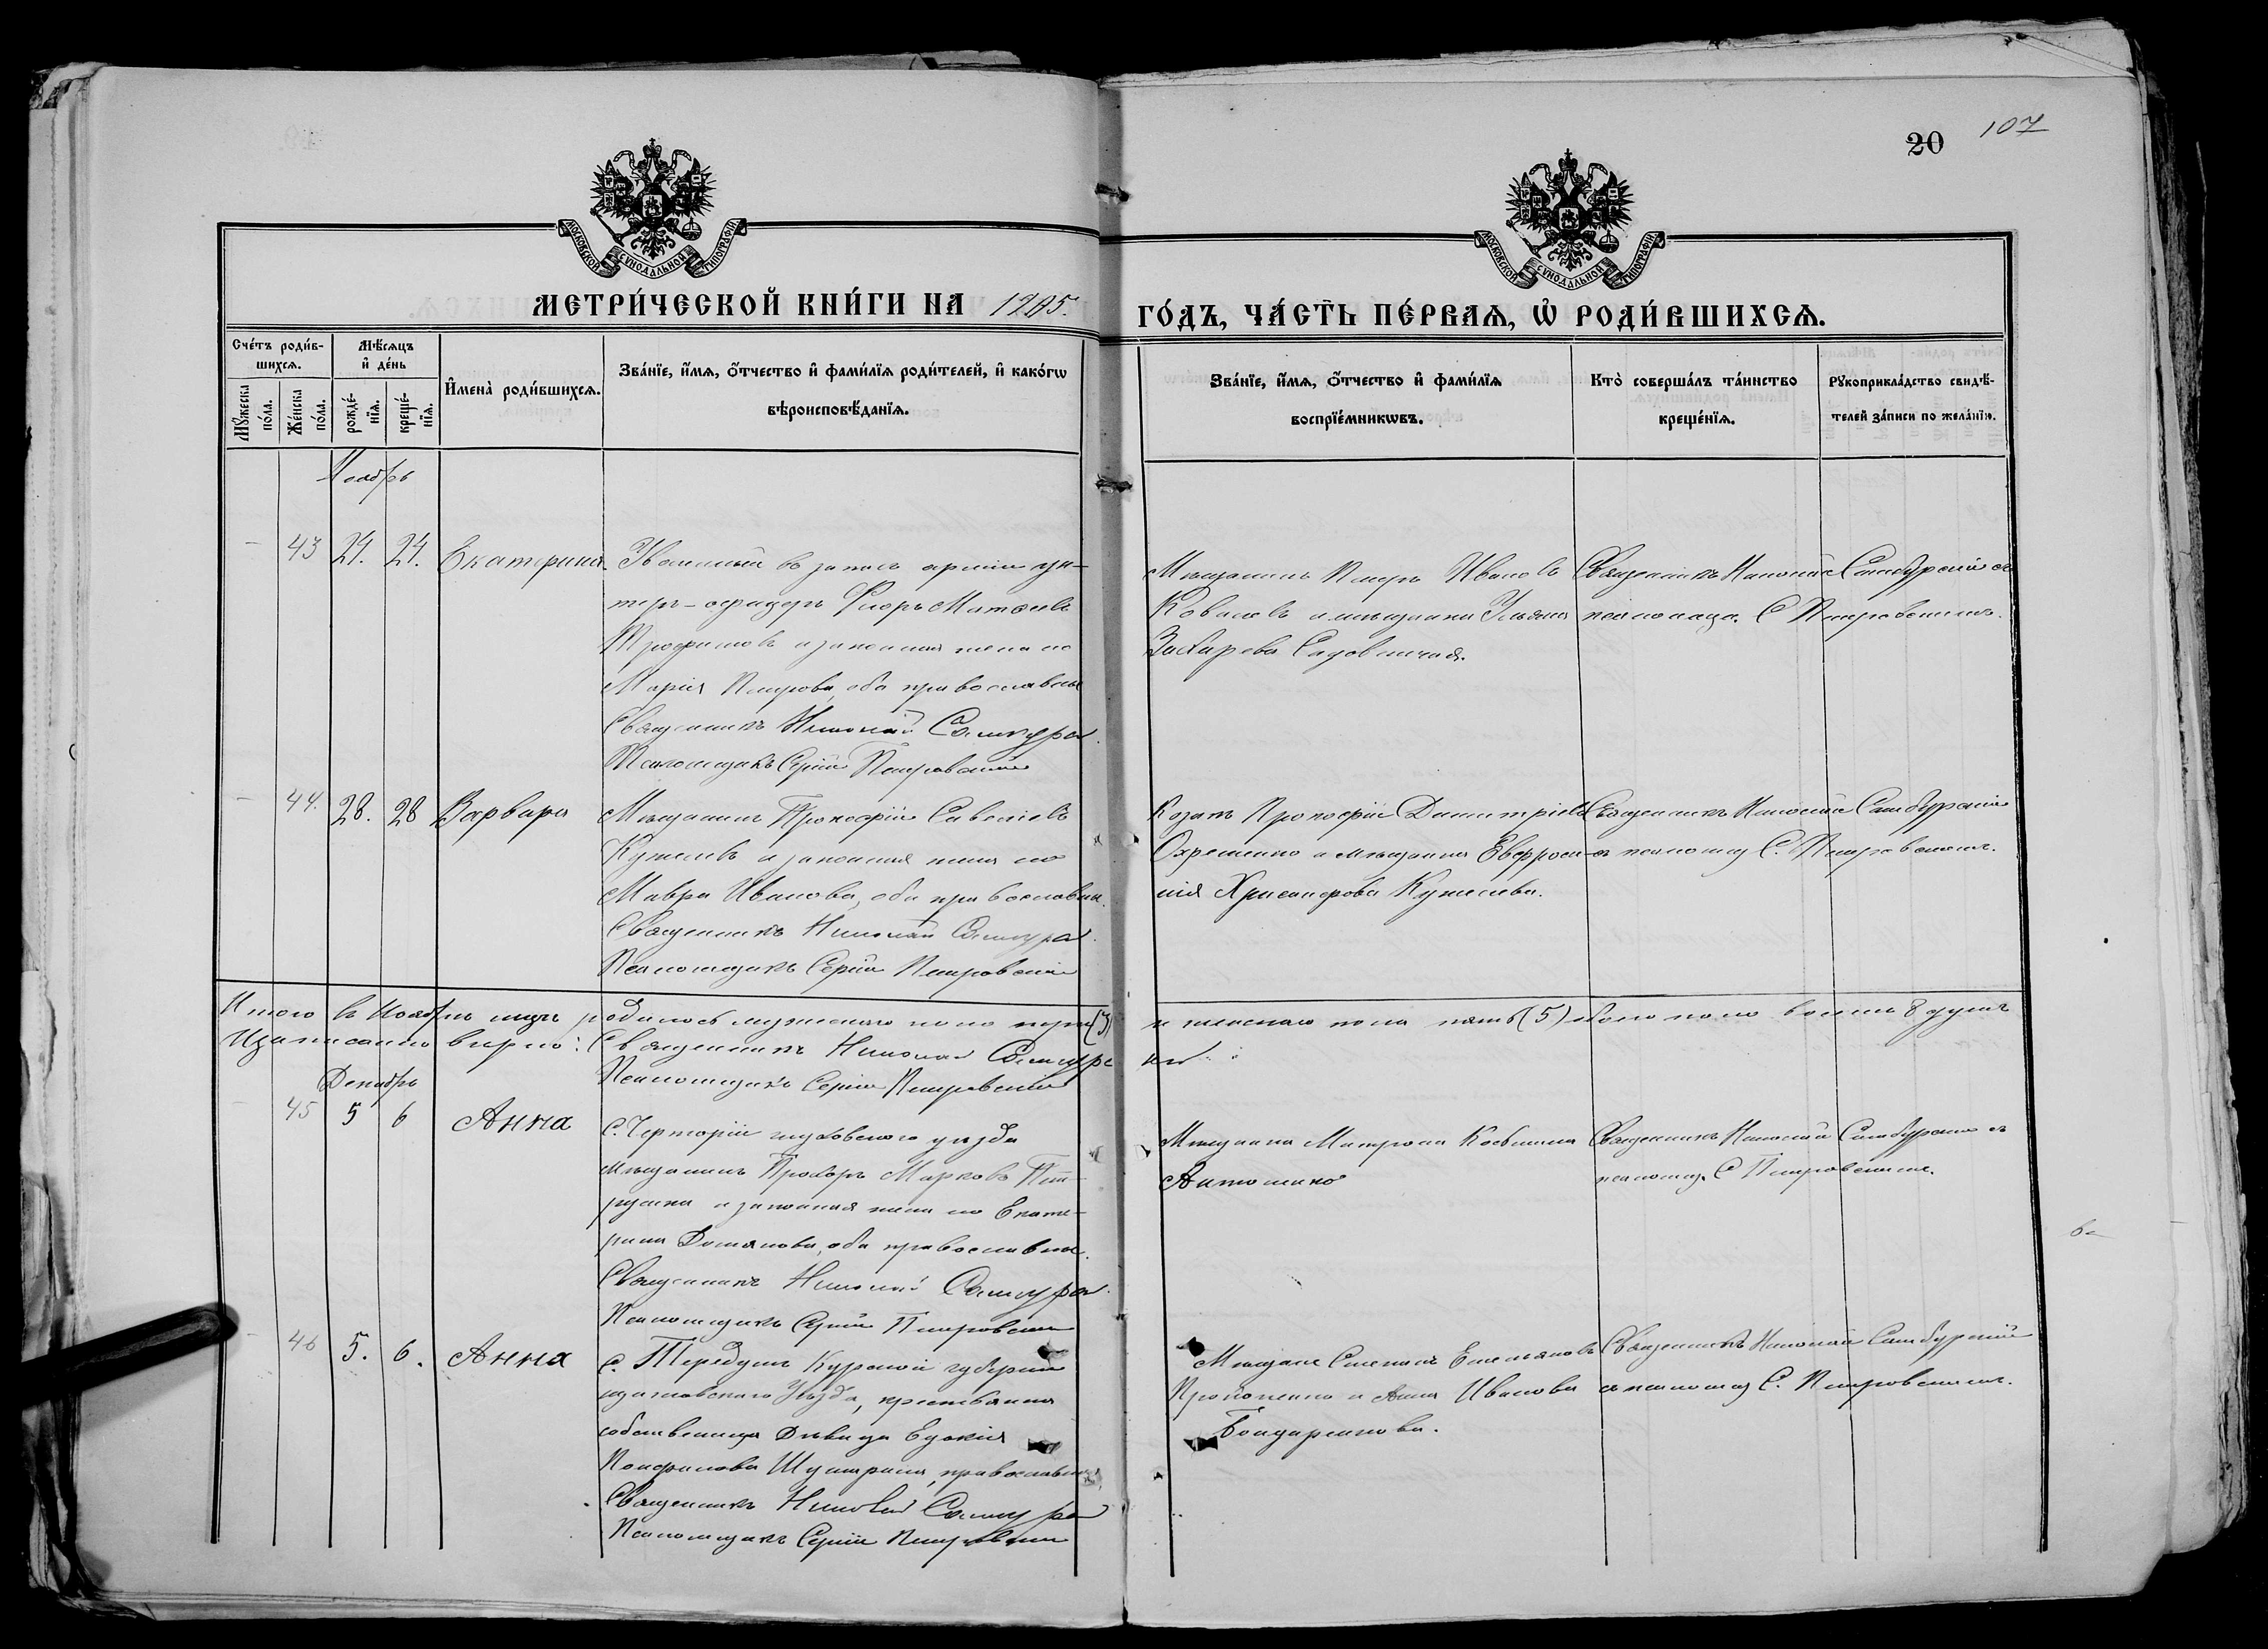 20 107
МОСКОВСКОЙ СѴНОДАЛЬНОЙ ТИПОГРАФІИ.
МОСКОВСКОЙ СѴНОДАЛЬНОЙ ТИПОГРАФІИ.
МЕТРИ́ЧЕСКОЙ КНИ́ГИ НА 1905.
ГО́ДЪ, ЧА́СТЬ ПЕ́РВАЯ, Ѡ҆ РОДИ́ВШИХСЯ.
Сче́тъ роди́в-
шихся.
Мꙋ́жеска по́ла.
Же́нска по́ла.
Мѣ́сяцъ
и҆ де́нь
рожде́-
нїя.
креще́-
нїя.
И҆мена̀ роди́вшихся.
Зва́нїе, и҆́мя, ѻ҆́тчество и҆ фами́лїя роди́телей, и҆ како́гѡ
вѣроисповѣ́данїя.
Зва́нїе, и҆́мя, ѻ҆́тчество и҆ фами́лїя
воспрїе́мникѡвъ.
Кто̀ соверша́лъ та́инство
креще́нїя.
Рꙋкоприкла́дство свидѣ́-
телей за́писи по жела́нїю.
Ноябрь
43 24. 24. Екатерина.
Уволенный въ запасъ арміи ун-
теръ-офицеръ Фиоръ Матѳеевъ
Трофимовъ и законная жена его
Марія Петрова, оба православные
Священникъ Николай Самбурс
Псаломщикъ Сергій Петровскій
Мѣщанинъ Петръ Ивановъ
Ковалевъ и мѣщанка Ульяна
Захарева Садовничая.
Священникъ Николай Самбурскій съ
псаломщ. С Петровскимъ.
44. 28. 28 Варвара
Мѣщанинъ Прокофій Савеліевъ
Кужелевъ и законная жена его
Мавра Иванова, оба православн.
Священникъ Николай Самбурс
Псаломщикъ Сергій Петровскій
Козакъ Прокофій Димитріевъ
Охременко и мѣщанка Евфроси-
нія Хрисанфова Кужелева.
Священникъ Николай Самбурскій
съ псаломщ С. Петровскимъ.
Итого въ Ноябрѣ мцѣ родилось мужескаго пола три (3) и женскаго пола пять (5) обоего пола восемь 8 душъ
И записано вѣрно: Священникъ Николай Самбурскій
Псаломщикъ Сергій Петровскій
Декабрь
45 5 6 Анна
С. Чорторіи глуховского уѣзда
мѣщанинъ Прохоръ Марковъ Пет-
рушка и законная жена его Екате-
рина Домянова, оба православные.
Священникъ Николай Самбурс
Псаломщикъ Сергій Петровскій
Мѣщанка Матрона Косьмина
Антоненко
Священникъ Николай Самбурскій съ
псаломщ. С Петровскимъ.
46 5. 6. Анна
С. Теребунъ Курской губерніи
уѣзда, крестьянка
собственница дѣвица Евдокія
Панфилова православная
Священникъ Николай Самбурс
Псаломщикъ Сергій Петровскій
Мѣщане Стефанъ Емельяновъ
Прокопенко и Анна Иванова
Бондаренкова.
Священникъ Николай Самбурскій
съ псаломщ С. Петровскимъ.